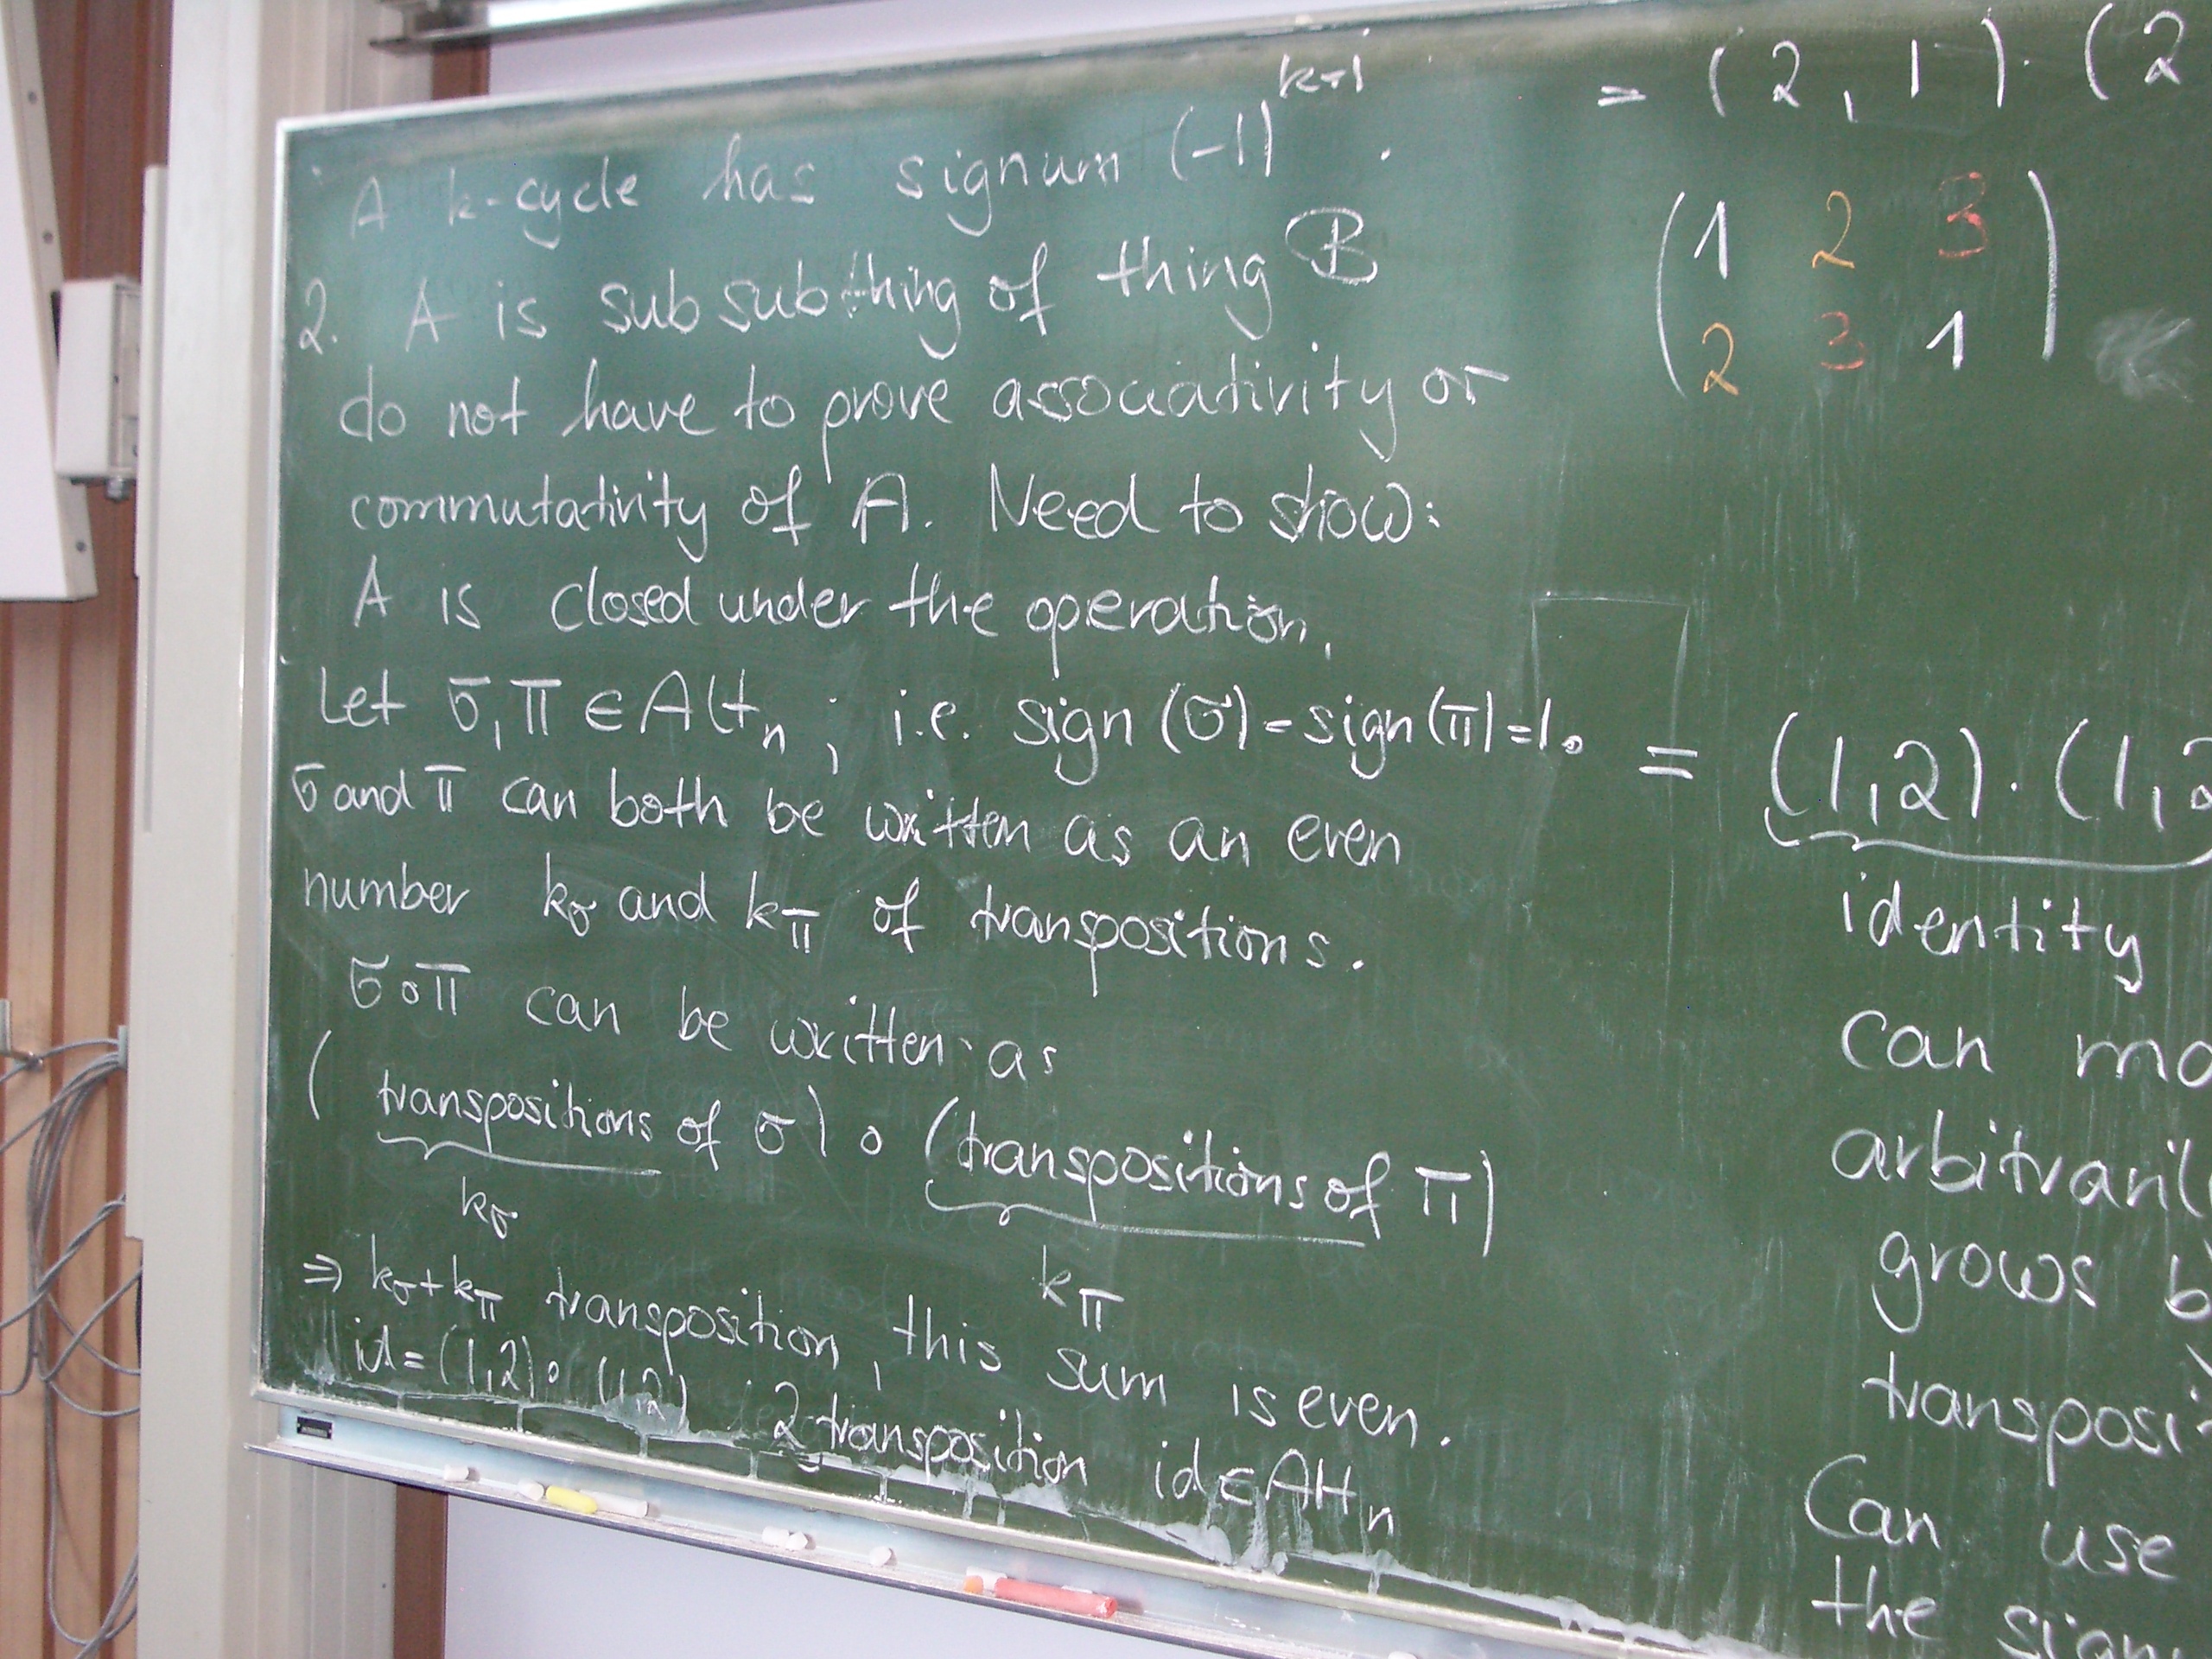 A k-cycle has signum (-1)^{k-1}.
2. A is subsubthing of thing B
do not have to prove associativity or
commutativity of A. Need to show:
A is closed under the operation.
Let σ, π ∈ Alt_n ; i.e. sign(σ) = sign(π) = 1.
σ and π can both be written as an even
number k_σ and k_π of transpositions.
σ∘π can be written as
( transpositions of σ) ∘ (transpositions of π)
k_σ k_π
⇒ k_σ + k_π transposition, this sum is even.
id = (1,2) ∘ (1,2) : 2 transposition id ∈ Alt_n
= (2, 1) · (2
( 1 2 3 )
( 2 3 1 )
= (1,2) · (1,2
identity
can
grows
Can use
the